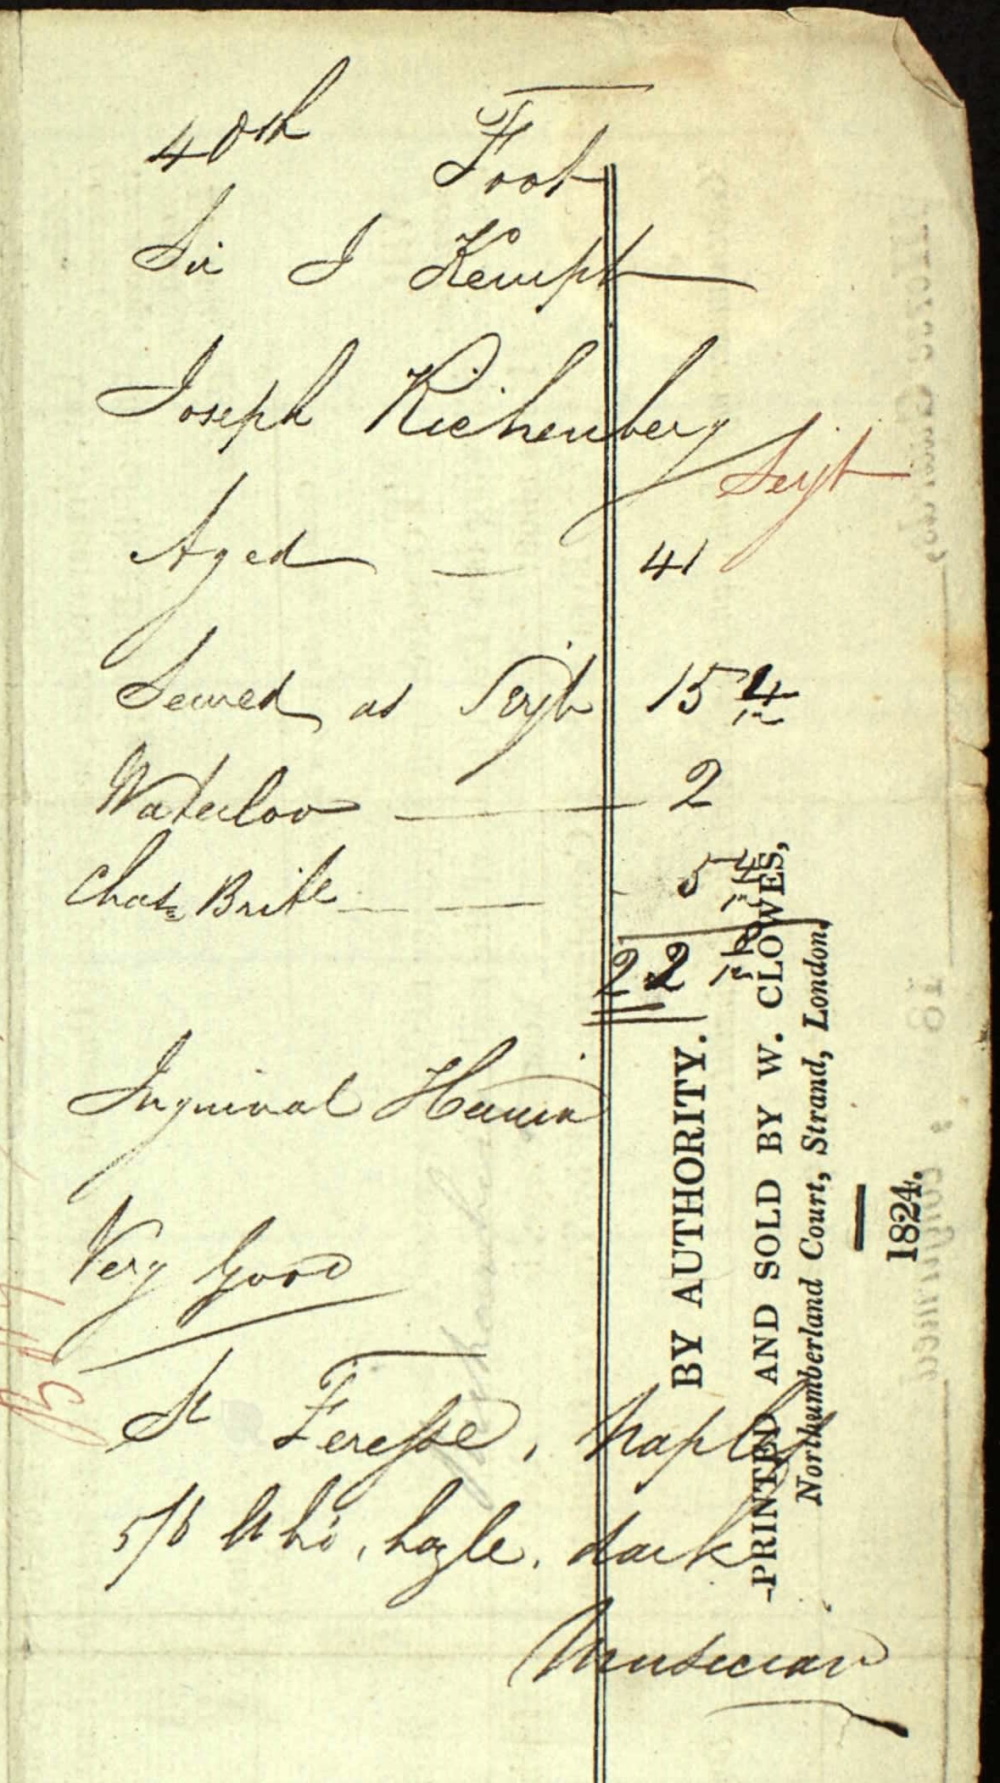 40th Foot
Sir J Kempt
Joseph Richenberg
Serjt
Aged — 41
Served as Serjt 15 4/12
Waterloo — 2
Chass Brite — 5 4/12
22 8/12
Inguinal Hernia
Very Good
St Teresse, Naples
dark
Musician
BY AUTHORITY.
PRINTED AND SOLD BY W. CLOWES,
Northumberland Court, Strand, London,
1824.